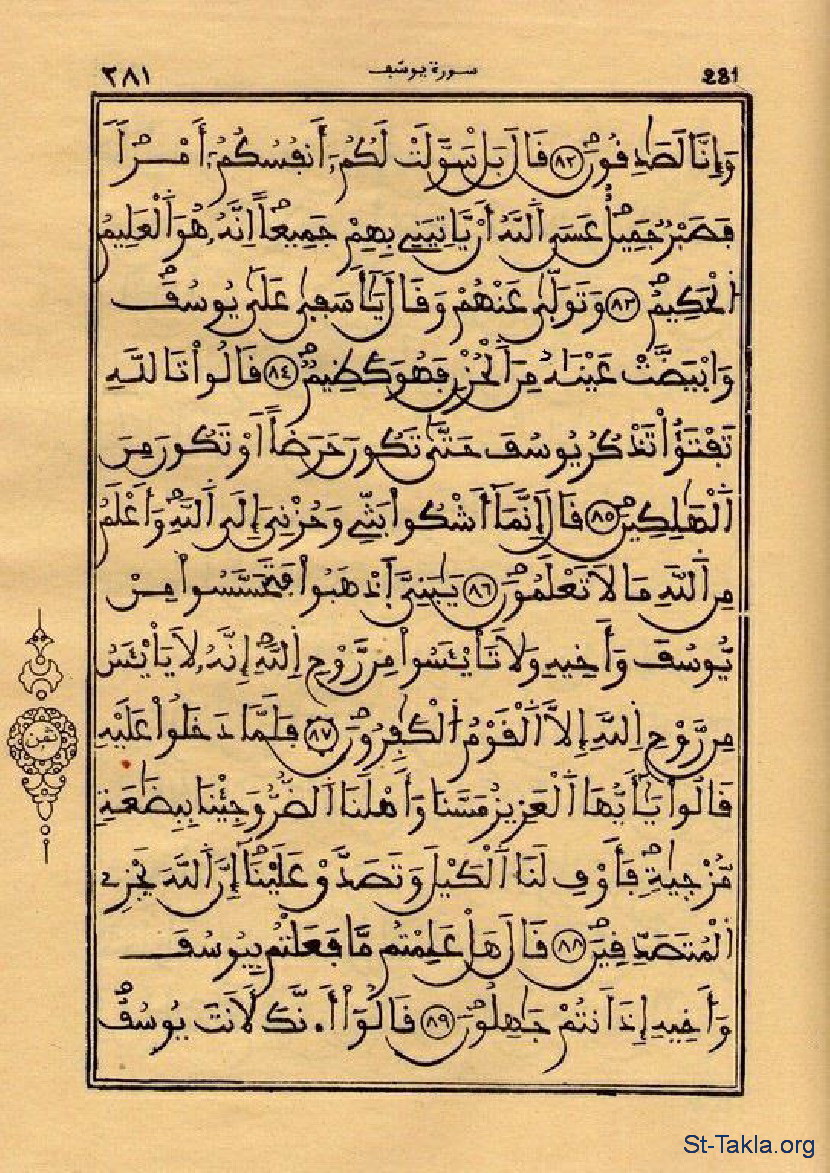 ٢٨١ سورة يوسُف 281
وَإِنَّا لَصَٰدِفُونَ ۝٨٢ فَالَ بَلْ سَوَّلَتْ لَكُمُۥٓ أَنفُسُكُمُۥٓ أَمْراٗ
فَصَبْرٞ جَمِيلٌ عَسَى اَ۬للَّهُ أَنْ يَّاتِيَنِے بِهِمْ جَمِيعاًۖ اِنَّهُۥ هُوَ اَ۬لْعَلِيمُ
اُ۬لْحَكِيمُۖ ۝٨٣ وَتَوَلّ۪ىٰ عَنْهُمْ وَفَالَ يَٰٓأَسَف۪ىٰ عَلَىٰ يُوسُفَۖ
وَابْيَضَّتْ عَيْنَٰهُ مِنَ اَ۬لْحُزْنِ فَهُوَ كَظِيمٞۖ ۝٨٤ فَالُواْ تَاللَّهِ
تَفْتَؤُاْ تَذْكُرُ يُوسُفَ حَتَّىٰ تَكُونَ حَرَضاً اَوْ تَكُونَ مِنَ
اَ۬لْهَٰلِكِينَۖ ۝٨٥ فَالَ إِنَّمَآ أَشْكُواْ بَثِّے وَحُزْنِيَ إِلَى اَ۬للَّهِۖ وَأَعْلَمُ
مِنَ اَ۬للَّهِ مَا لَا تَعْلَمُونَۖ ۝٨٦ يَٰبَنِيَّ اَ۪ذْهَبُواْ فَتَحَسَّسُواْ مِنْ
يُّوسُفَ وَأَخِيهِ وَلَا تَاْيْـَٔسُواْ مِن رَّوْحِ اِ۬للَّهِۖ إِنَّهُۥ لَا يَاْيْـَٔسُ
مِن رَّوْحِ اِ۬للَّهِ إِلَّا اَ۬لْفَوْمُ اُ۬لْكَٰفِرُونَۖ ۝٨٧ فَلَمَّا دَخَلُواْ عَلَيْهِ
فَالُواْ يَٰٓأَيُّهَا اَ۬لْعَزِيزُ مَسَّنَا وَأَهْلَنَا اَ۬لضُّرُّ وَجِئْنَا بِبِضَٰعَةٖ
مُّزْج۪يٰةٖ فَأَوْفِ لَنَا اَ۬لْكَيْلَ وَتَصَدَّقْ عَلَيْنَآۖ إِنَّ اَ۬للَّهَ يَجْزِے
اِ۬لْمُتَصَدِّفِينَۖ ۝٨٨ فَالَ هَلْ عَلِمْتُم مَّا فَعَلْتُم بِيُوسُفَ
وَأَخِيهِ إِذَ اَنتُمْ جَٰهِلُونَۖ ۝٨٩ فَالُوٓاْ أَ۟نَّكَ لَأَنتَ يُوسُفُۖ
ثمن
St-Takla.org